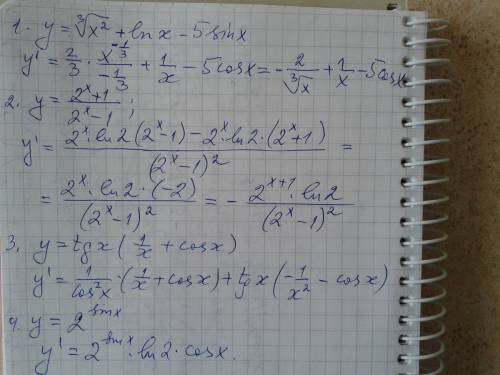 1. y = ∛x² + ln x - 5 sin x
y' = 2/3 · x^(-1/3)/(-1/3) + 1/x - 5cosx = - 2/∛x + 1/x - 5cosx
2. y = (2^x+1)/(2^x-1) ;
y' = (2^x · ln2 (2^x-1) - 2^x · ln2 · (2^x+1))/(2^x-1)² =
= (2^x · ln2 · (-2))/(2^x-1)² = - (2^(x+1) · ln2)/(2^x-1)²
3. y = tg x (1/x + cosx)
y' = 1/cos²x · (1/x + cosx) + tg x (-1/x² - cosx)
4. y = 2^sinx
y' = 2^sinx · ln2 · cosx.